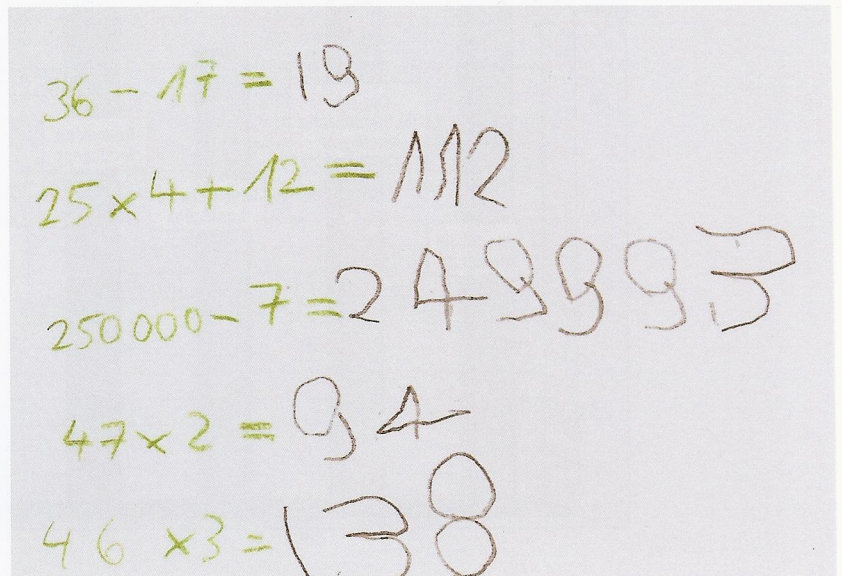 36 - 17 = 19
25 x 4 + 12 = 112
250000 - 7 = 249993
47 x 2 = 94
46 x 3 = 138